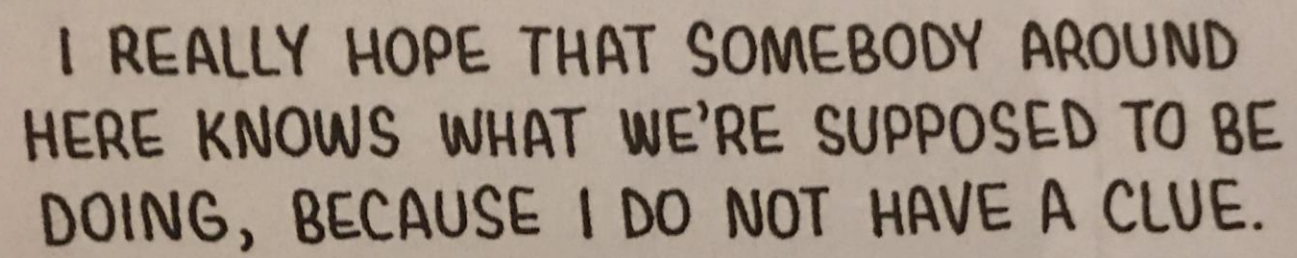 I REALLY HOPE THAT SOMEBODY AROUND
HERE KNOWS WHAT WE'RE SUPPOSED TO BE
DOING, BECAUSE I DO NOT HAVE A CLUE.